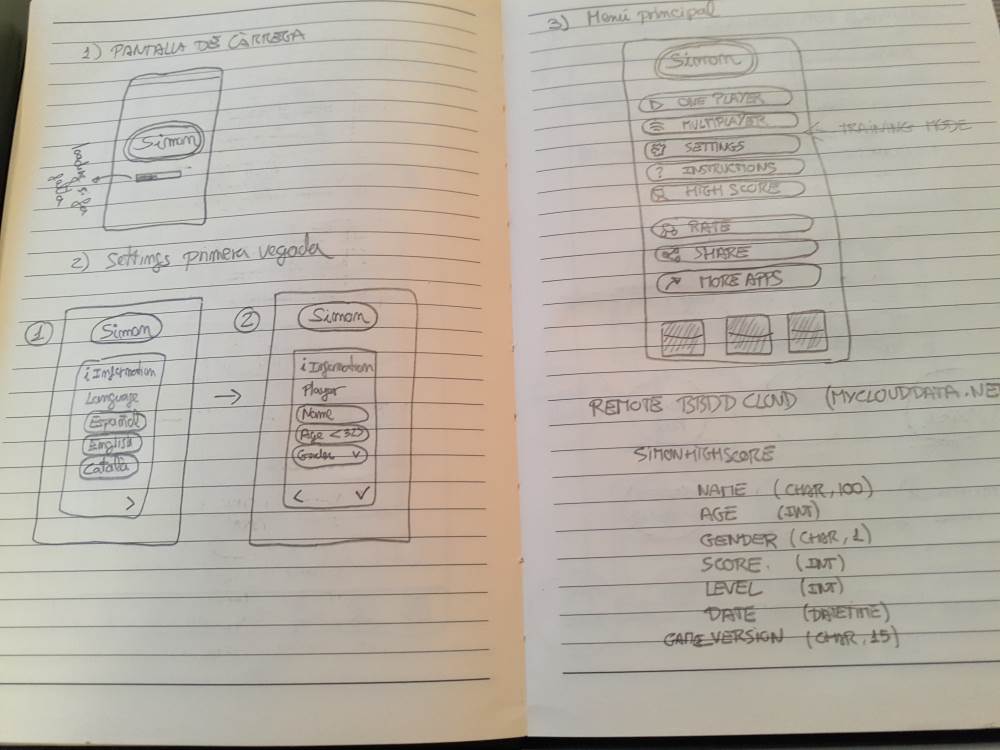 1) PANTALLA DE CÀRREGA
Simon
2) Settings primera vegada
1
Simon
i Information
Language
Español
English
Català
>
→
2
Simon
i Information
Player
Name
Age < 32>
Gender v
<
✓
3) Menú principal
Simon
ONE PLAYER
MULTIPLAYER
← TRAINING MODE
SETTINGS
? INSTRUCTIONS
HIGH SCORE
RATE
SHARE
MORE APPS
REMOTE BBDD CLOUD (MYCLOUDDATA.NE
SIMONHIGHSCORE
NAME (CHAR, 100)
AGE (INT)
GENDER (CHAR, 1)
SCORE. (INT)
LEVEL (INT)
DATE (DATETIME)
GAME_VERSION (CHAR, 15)